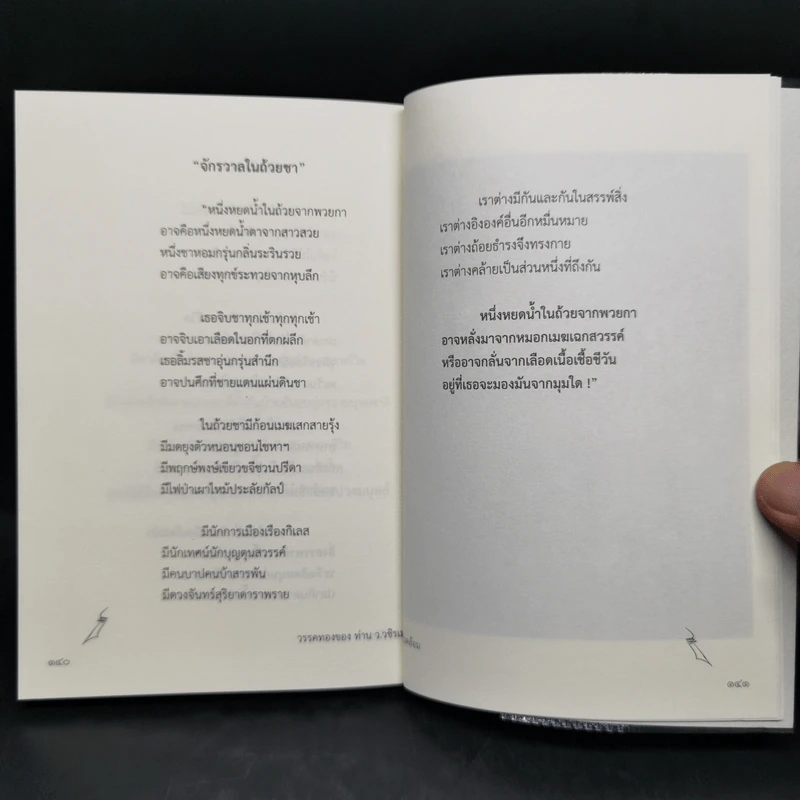 “จักรวาลในถ้วยชา”
“หนึ่งหยดน้ำในถ้วยจากพวยกา
อาจคือหนึ่งหยดน้ำตาจากสาวสวย
หนึ่งชาหอมกรุ่นกลิ่นระรินรวย
อาจคือเสียงทุกข์ระทวยจากหุบลึก
เธอจิบชาทุกเช้าทุกทุกเช้า
อาจจิบเอาเลือดในอกที่ตกผลึก
เธอลิ้มรสชาอุ่นกรุ่นสำนึก
อาจปนศึกที่ชายแดนแผ่นดินชา
ในถ้วยชามีก้อนเมฆเสกสายรุ้ง
มีมดยุงตัวหนอนซอนไซหาฯ
มีพฤกษ์พงษ์เขียวขจีชวนปรีดา
มีไฟป่าเผาไหม้ประลัยกัลป์
มีนักการเมืองเรืองกิเลส
มีนักเทศน์นักบุญตุนสวรรค์
มีคนบาปคนบ้าสารพัน
มีดวงจันทร์สุริยาดาราพราย
วรรคทองของ ท่าน ว.วชิรเม
๑๔๐
เราต่างมีกันและกันในสรรพ์สิ่ง
เราต่างอิงองค์อื่นอีกหมื่นหมาย
เราต่างถ้อยธำรงจึงทรงกาย
เราต่างคล้ายเป็นส่วนหนึ่งที่ถึงกัน
หนึ่งหยดน้ำในถ้วยจากพวยกา
อาจหลั่งมาจากหมอกเมฆเฉกสวรรค์
หรืออาจกลั่นจากเลือดเนื้อเชื้อชีวัน
อยู่ที่เธอจะมองมันจากมุมใด !”
๑๔๑